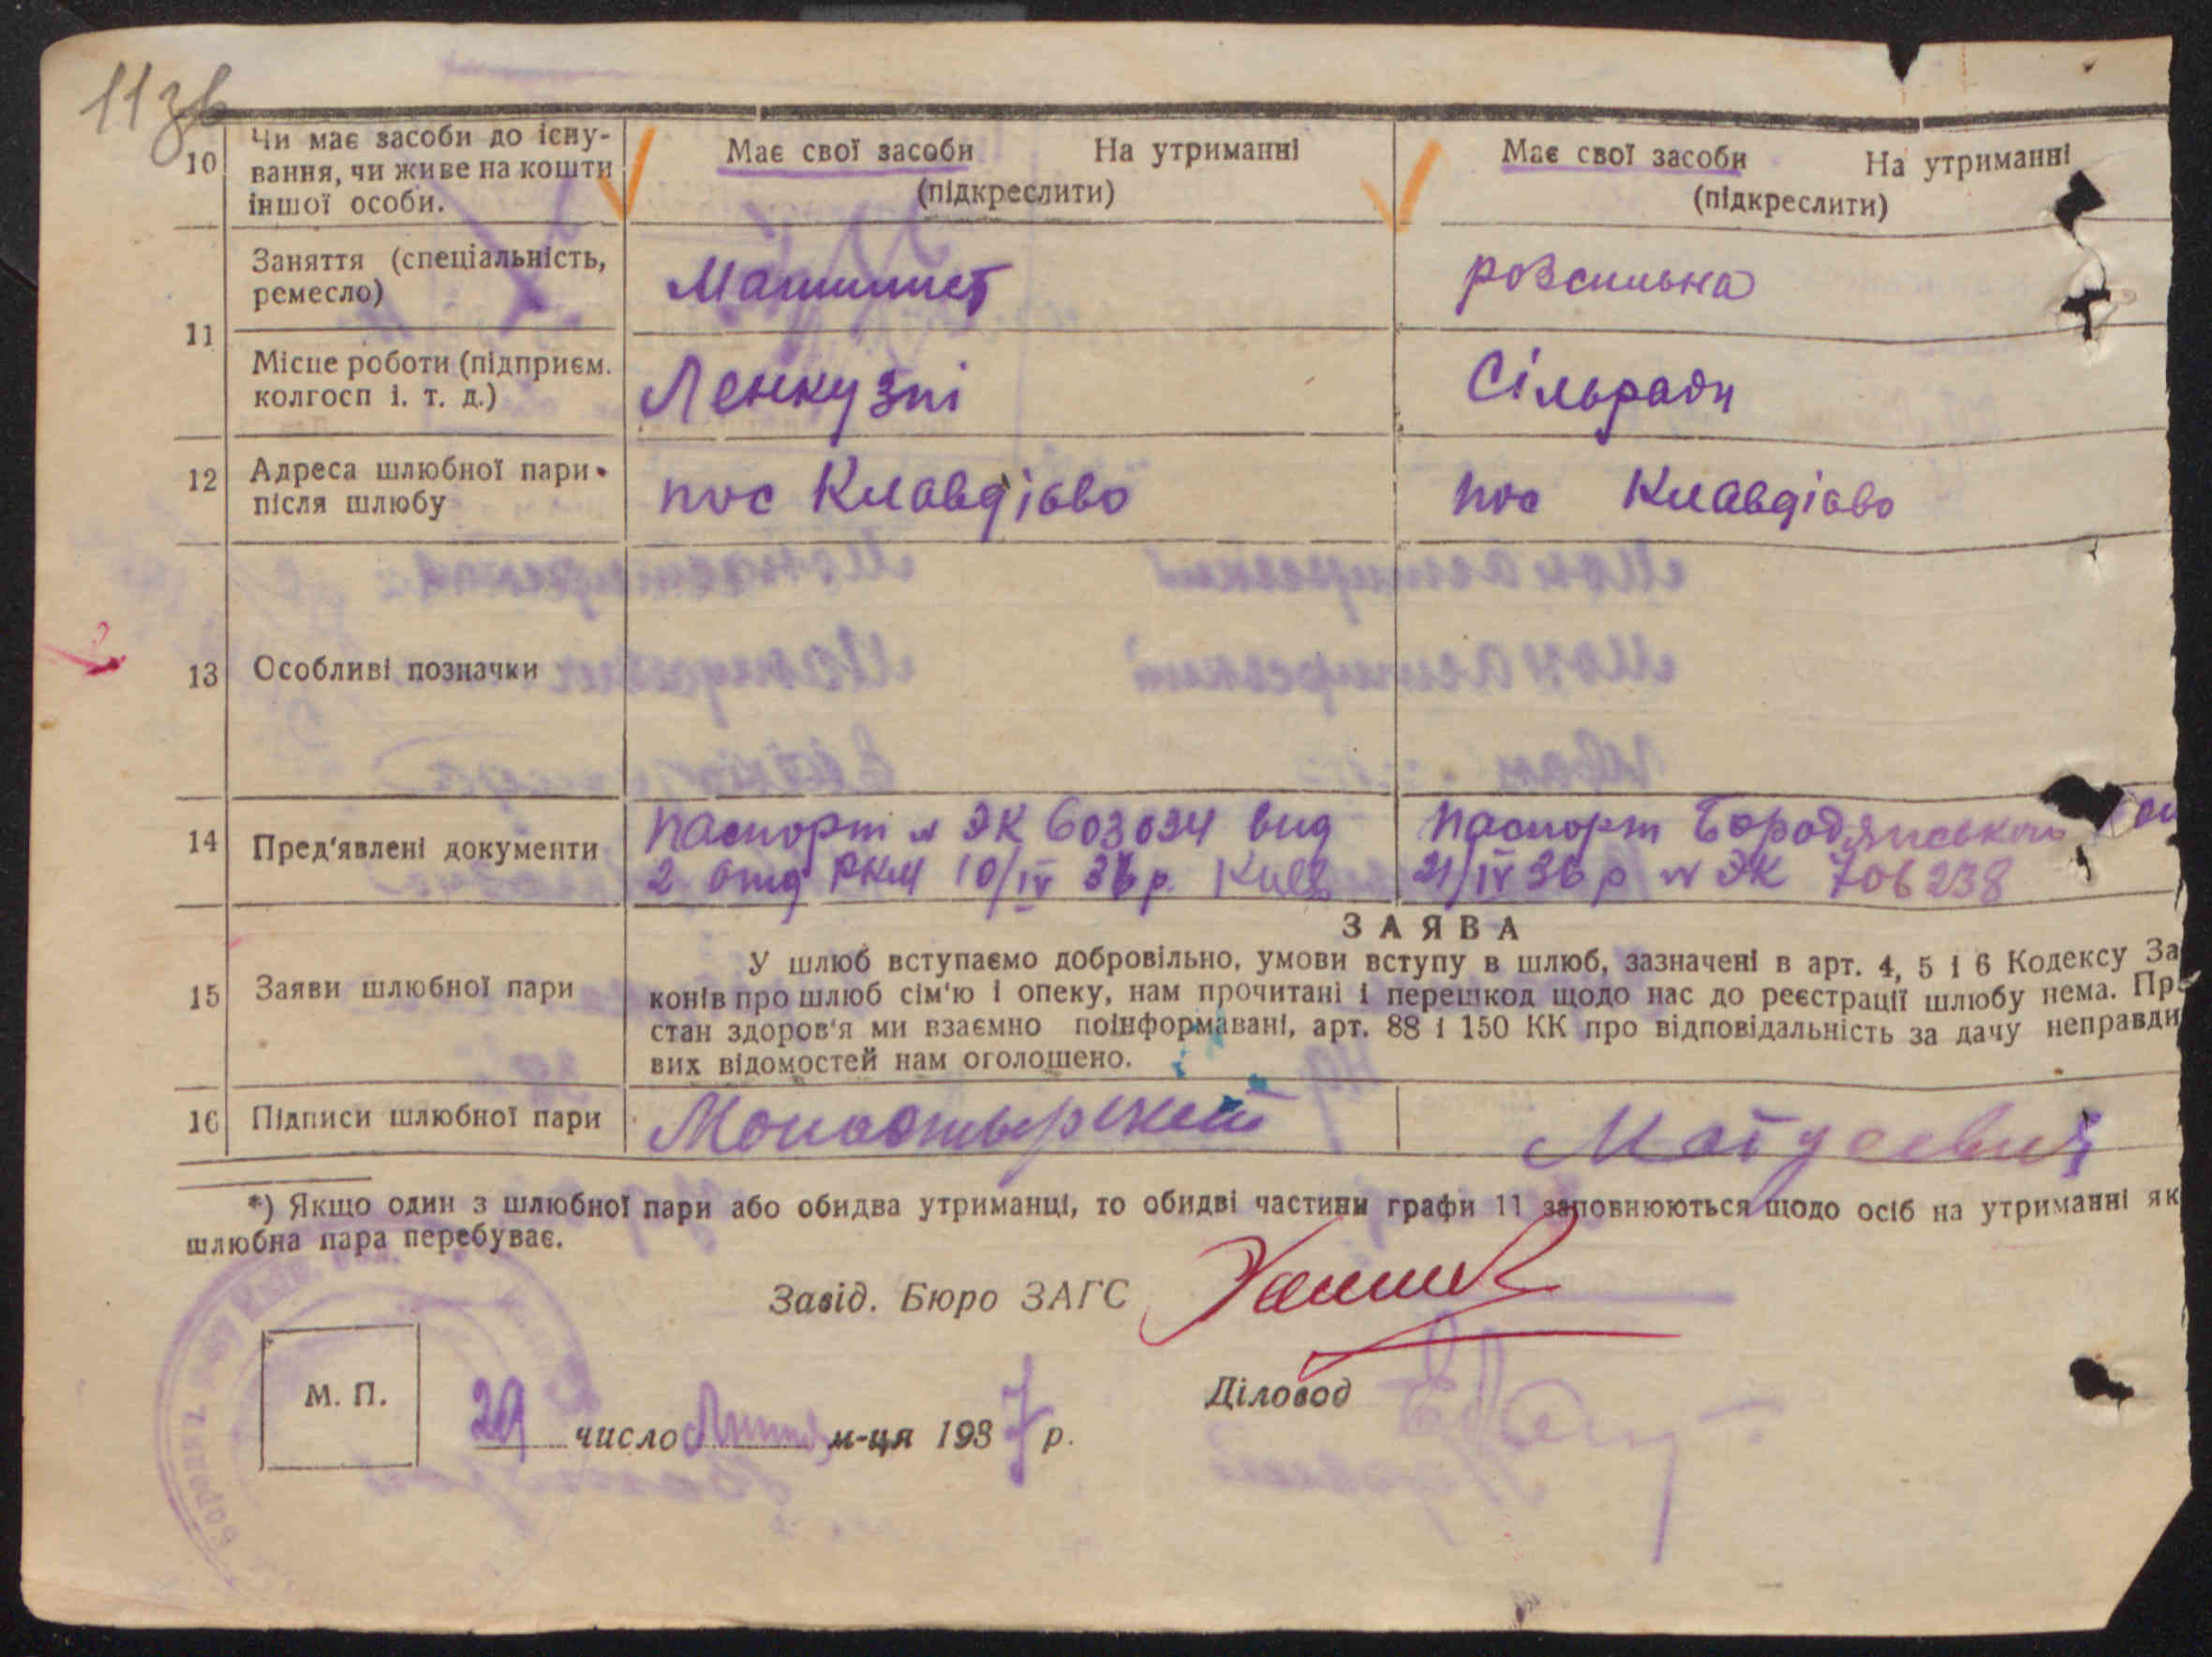 11 зв
10 Чи має засоби до існу-
вання, чи живе на кошти
іншої особи.
Має свої засоби На утриманні
(підкреслити)
Має свої засоби На утриманні
(підкреслити)
11
Заняття (спеціальність,
ремесло)
Машинист
розсильна
Місце роботи (підприєм.
колгосп і. т. д.)
Ленкузні
Сільради
12 Адреса шлюбної пари
після шлюбу
пос Клавдієво
пос Клавдієво
13 Особливі позначки
14 Пред'явлені документи
Паспорт № ЭК 603034 вид
2 отд РКМ 10/IV 36 р. Київ
Паспорт Бородянською
21/IV 36 р № ЭК 706238
15 Заяви шлюбної пари
ЗАЯВА
У шлюб вступаємо добровільно, умови вступу в шлюб, зазначені в арт. 4, 5 і 6 Кодексу За
конів про шлюб сім'ю і опеку, нам прочитані і перешкод щодо нас до реєстрації шлюбу нема. Пр
стан здоров'я ми взаємно поінформавані, арт. 88 і 150 КК про відповідальність за дачу неправди
вих відомостей нам оголошено.
16 Підписи шлюбної пари
Монастырский
*) Якщо один з шлюбної пари або обидва утриманці, то обидві частини графи 11 заповнюються щодо осіб на утриманні як
шлюбна пара перебуває.
Завід. Бюро ЗАГС
М. П.
Діловод
29 число Липня м-ця 1937 р.